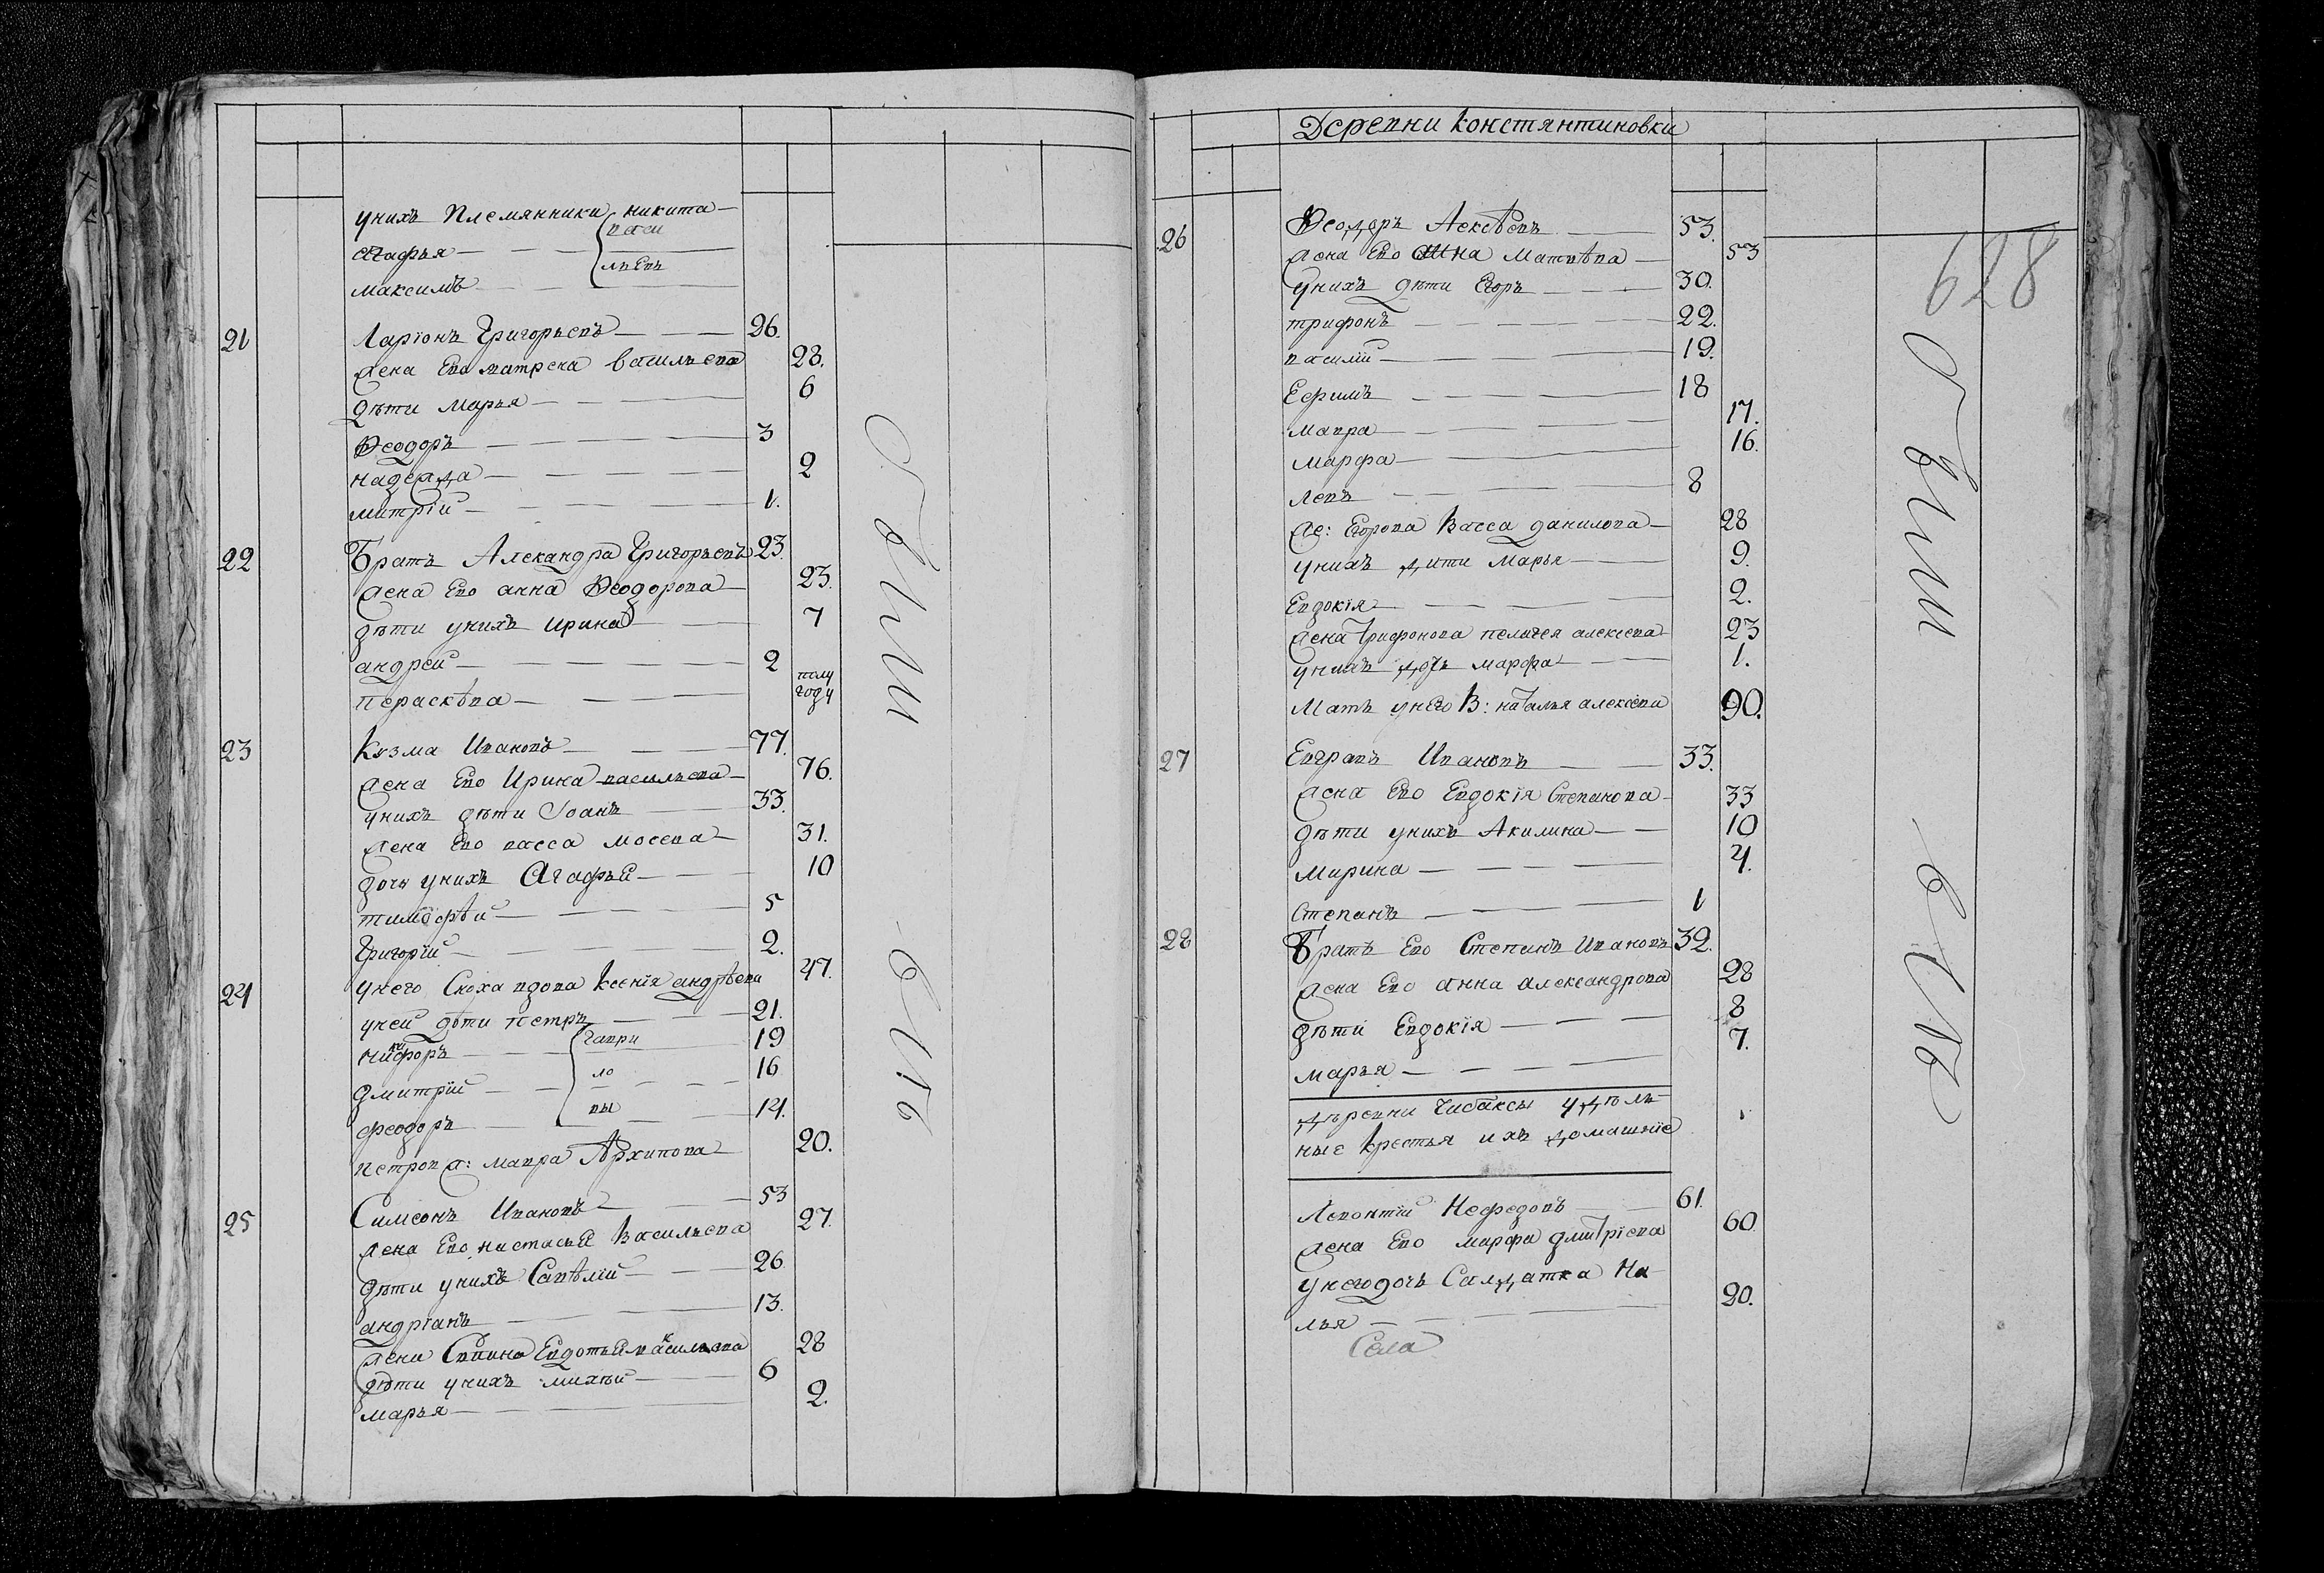 унихъ племянники никита
васи
агафья
льевъ
максимъ
21 Ларiонъ Григорьевъ 26.
жена Ево матрена васильева 28.
дѣти Марья 6
Феодоръ 3
надежда 2
митрiй 1.
22 Братъ Алекандра Григорьевъ 23.
жена Ево анна Феодорова 23.
дѣти унихъ ирина 7
андрей 2
полу
году
пераскѣва
23 Кузма Ивановъ 77.
жена Ево Ирина васильева 76.
унихъ дѣти Iоанъ 33.
жена Ево васса мосева 31.
дочь унихъ Агафья 10
тимофѣй 5
Григорiй 2.
24 унего Сноха вдова ксенiя андрѣева 47.
уней дѣти петръ 21.
никифоръ гаври 19
дмитрiй ло 16
феодоръ вы 14.
петрова ж: мавра Архипова 20.
25 Симеонъ Ивановъ 53
жена Ево настасья Васильева 27.
дѣти унихъ Савѣлiй 26.
андрiанъ 13.
жена Евдотья васильева 28
дѣти унихъ михѣй 6
марья 2.
обини
евъ
Деревни константиновки
879
26 Феодоръ Аексѣевъ 53.
жена Ево анна Матвѣва 53
унихъ дѣти Егоръ 30.
трифонъ 22.
василiй 19.
Ефимъ 18
мавра 17.
марфа 16.
левъ 8
же: Егорова Васса данилова 28
унихъ дити Марья 9.
Евдокiя 2.
жена Трифонова пелагея алексева 23
унихъ дочь марфа 1.
Мать унего В: наталья алексева 90.
27 Евграпъ Ивановъ 33.
жена Ево Евдокiя Степанова 33
дѣти унихъ Акилина 10
Марина 4.
Степанъ 1
28 Братъ Ево Степанъ Ивановъ 32.
жена Ево анна александрова 28
дѣти Евдокiя 8
марья 7.
деревни Чибаксы удѣль
ные крестья ихъ домашнiе
Левонтiй Нефедовъ 61.
жена Ево марфа дмитрiева 60.
унегодочь Салдатка На
лья 20.
Села
обини
евъ